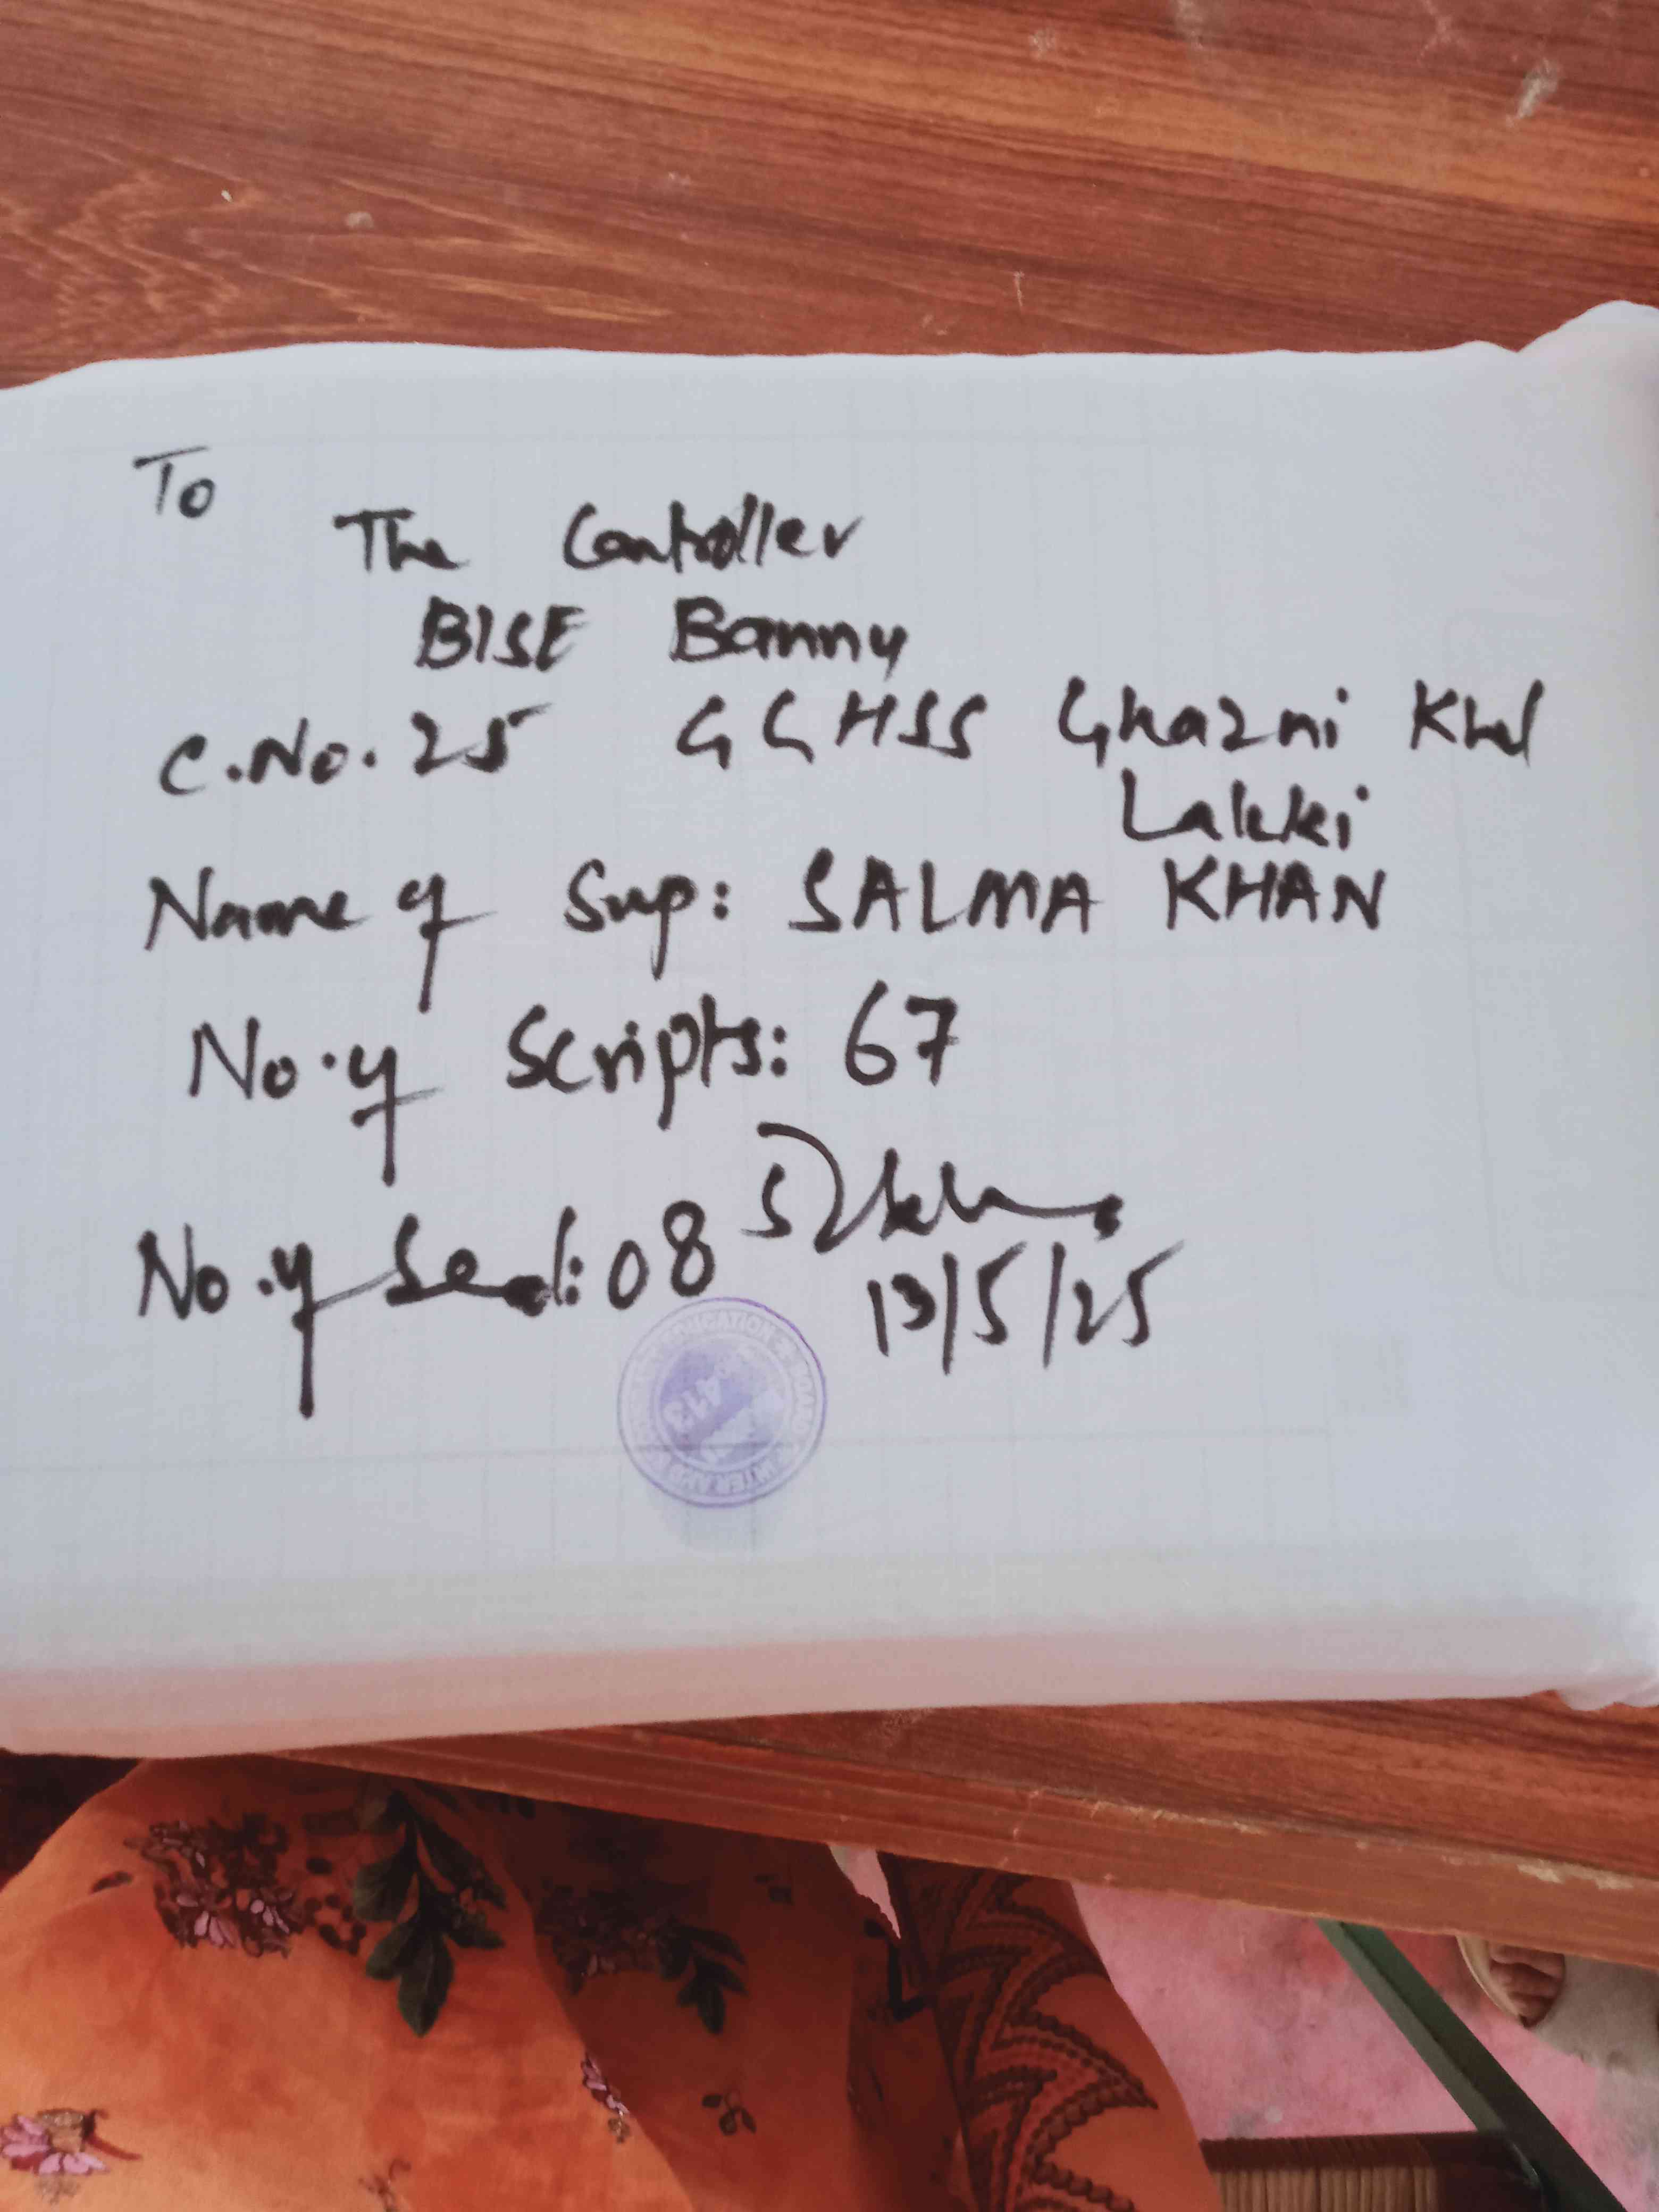 To
The Controller
BISE Bannu
C.No.25 GGHSS Ghazni Khel
Lakki
Name of Sup: SALMA KHAN
No. of Scripts: 67
No. of Seal: 08
13/5/25
EDUCATION BOARD
413
INTER AND